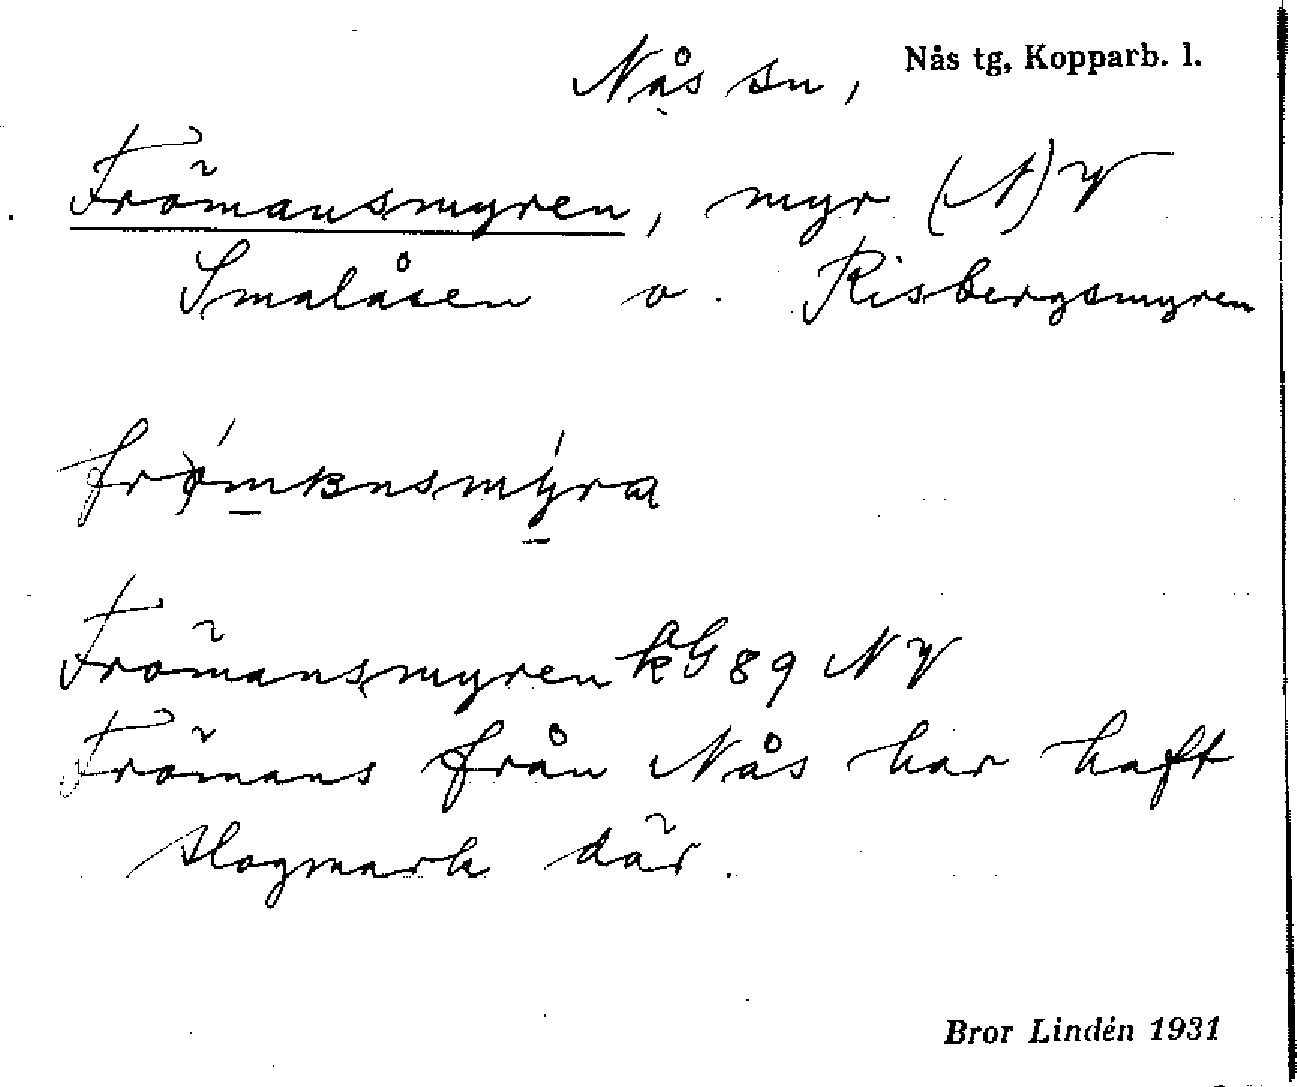 Nås sn, Nås tg, Kopparb. l.
Frömansmyren, myr (N) V
Smalåsen o. Risbergsmyren
Frömansmyren kG 89 NV
Frömans från Nås har haft
slogmark där.
Bror Lindén 1931